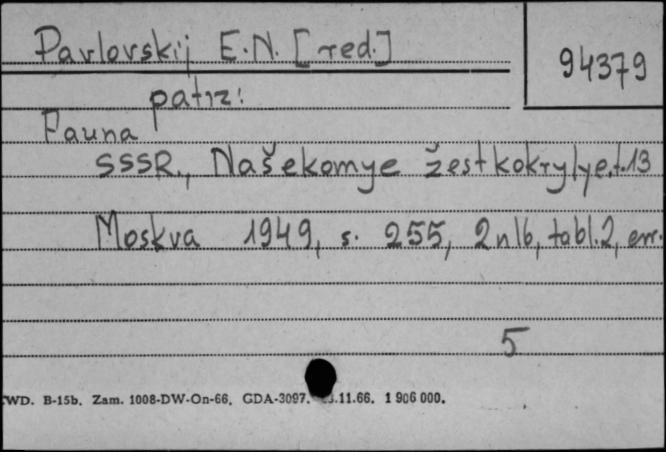 Pavlovskij E.N. [red.]
94379
patrz:
Fauna
SSSR., Našekomye žestkokrylye, t. 13
Moskva 1949, s. 255, 2 nlb, tabl. 2, err.
5
WD. B-15b. Zam. 1008-DW-On-66. GDA-3097. .11.66. 1 906 000.